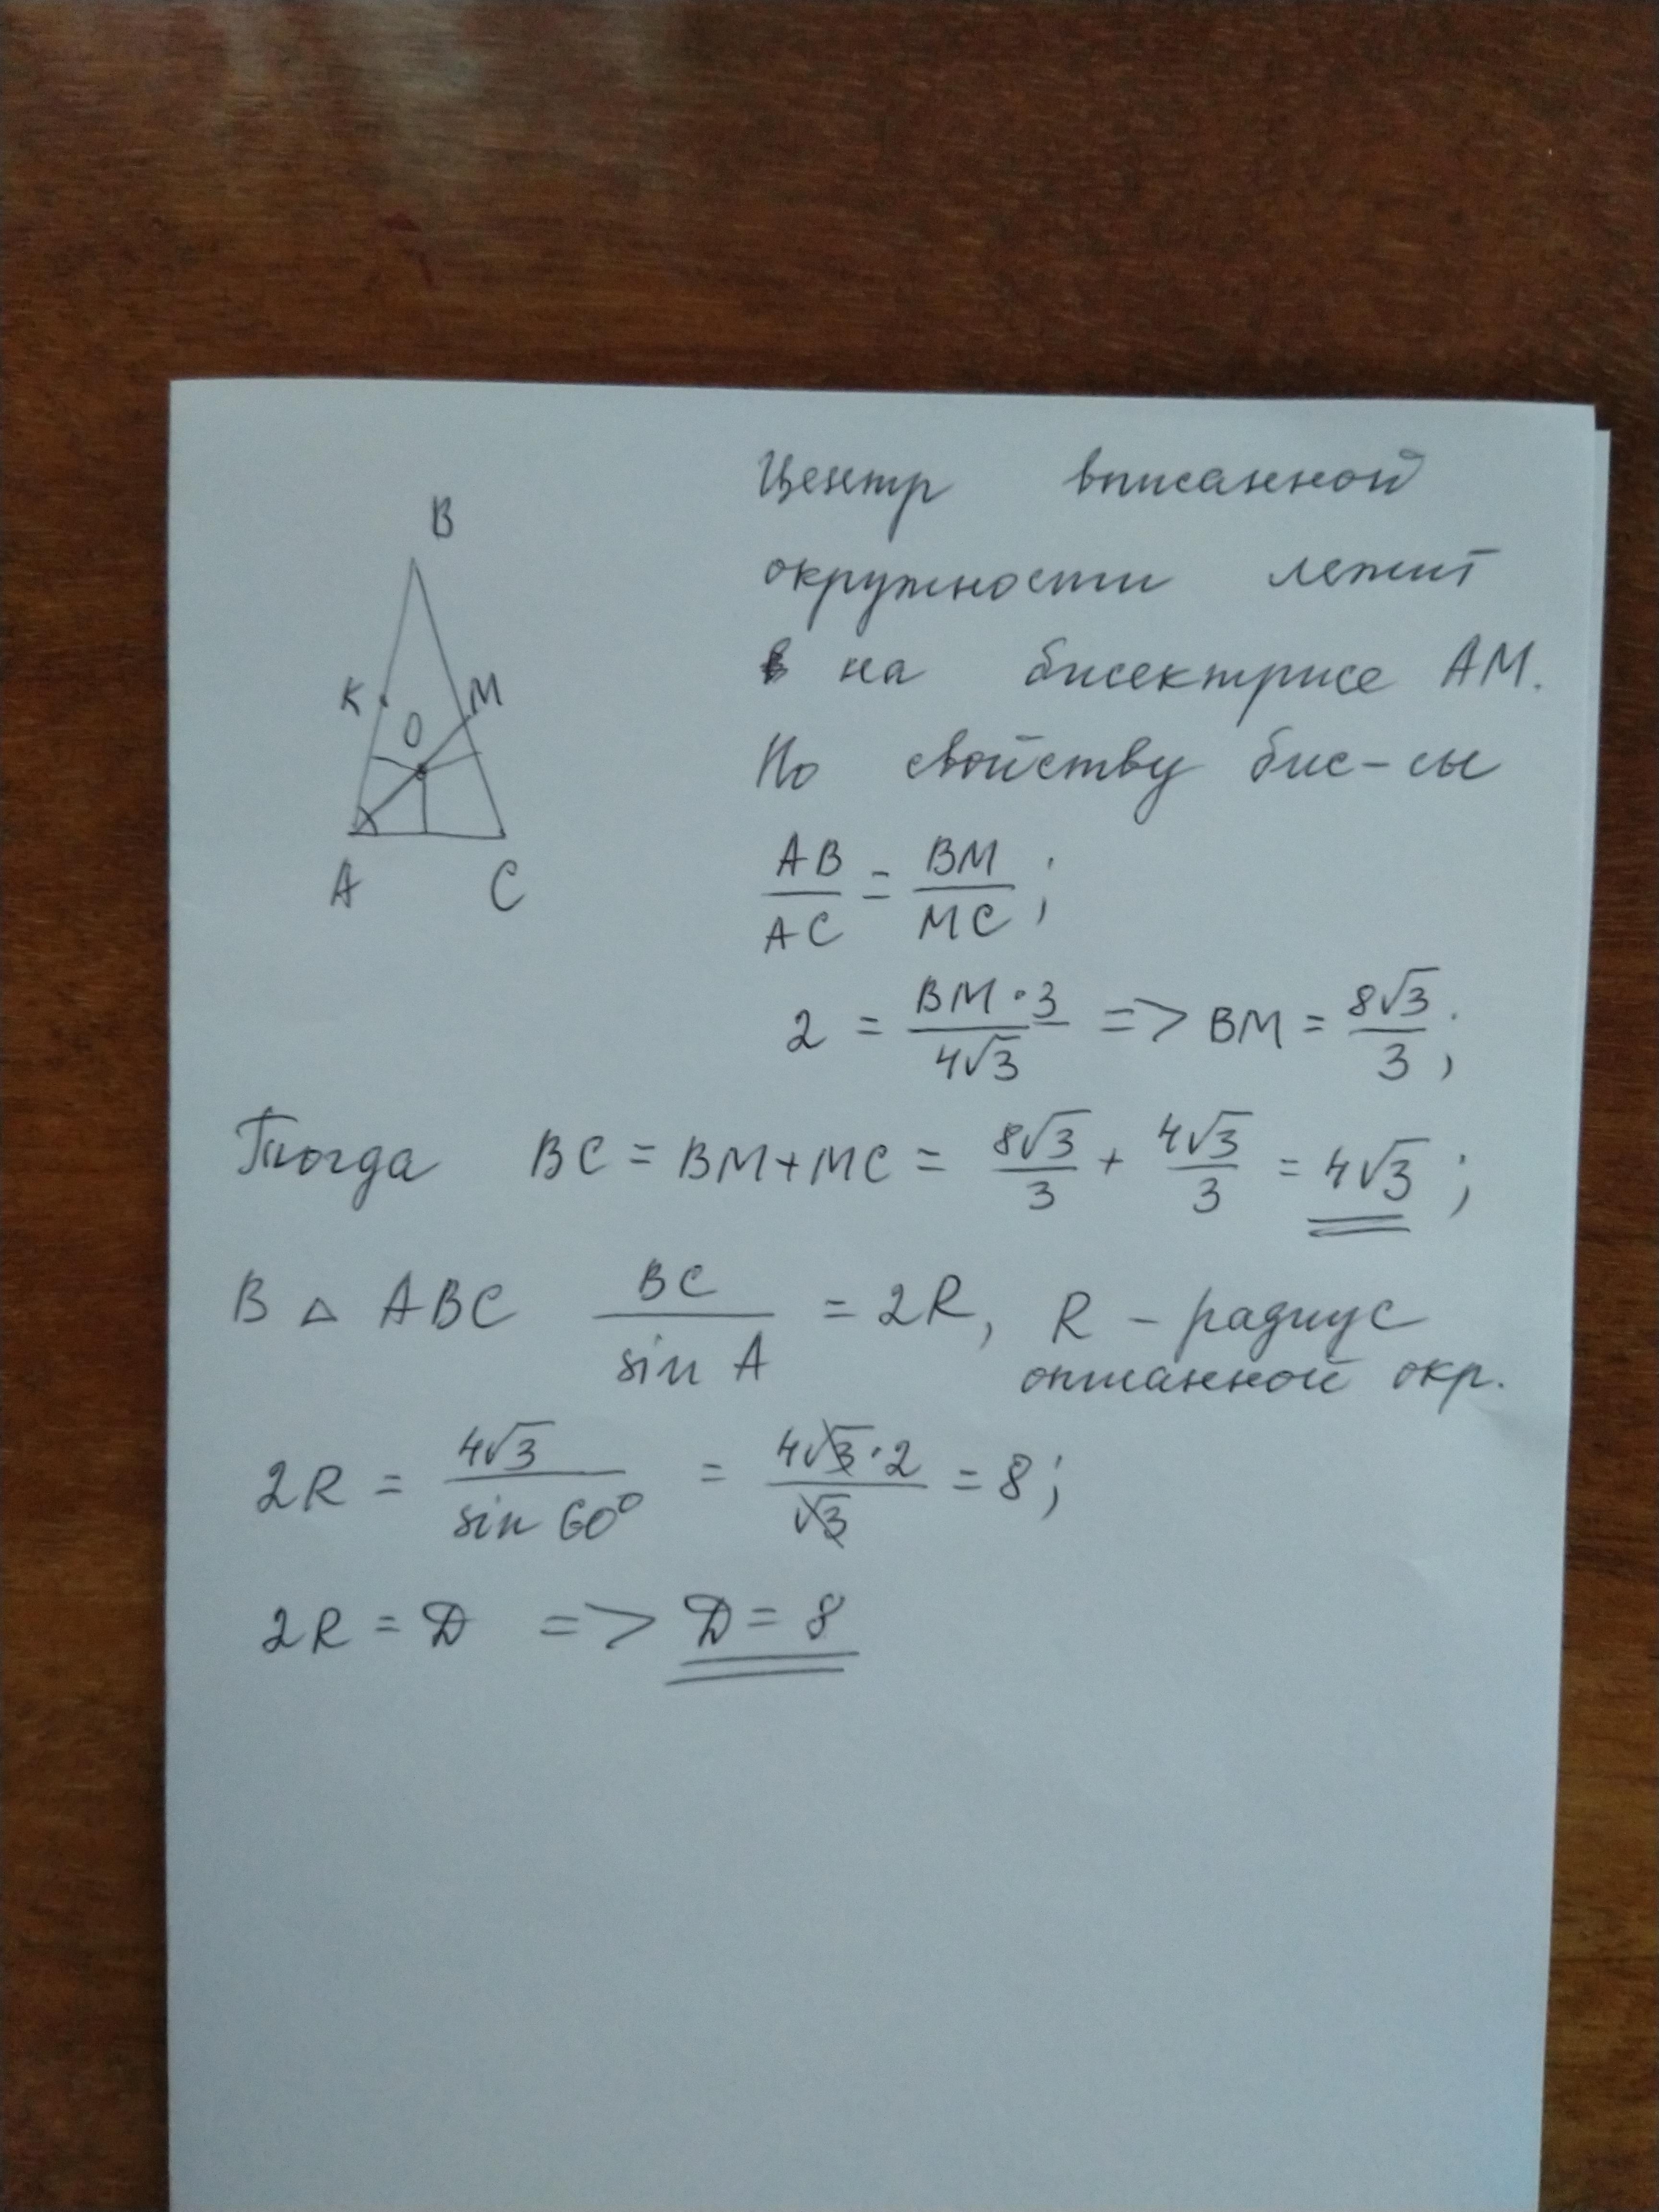 B
K
M
O
A
C
Центр вписанной
окружности лежит
на бисектрисе AM.
По свойству бис-сы
AB/AC = BM/MC;
2 = BM·3/4√3 => BM = 8√3/3;
Тогда BC = BM+MC = 8√3/3 + 4√3/3 = 4√3;
В △ ABC BC/sin A = 2R, R – радиус
описанной окр.
2R = 4√3/sin 60° = 4√3·2/√3 = 8;
2R = D => D = 8